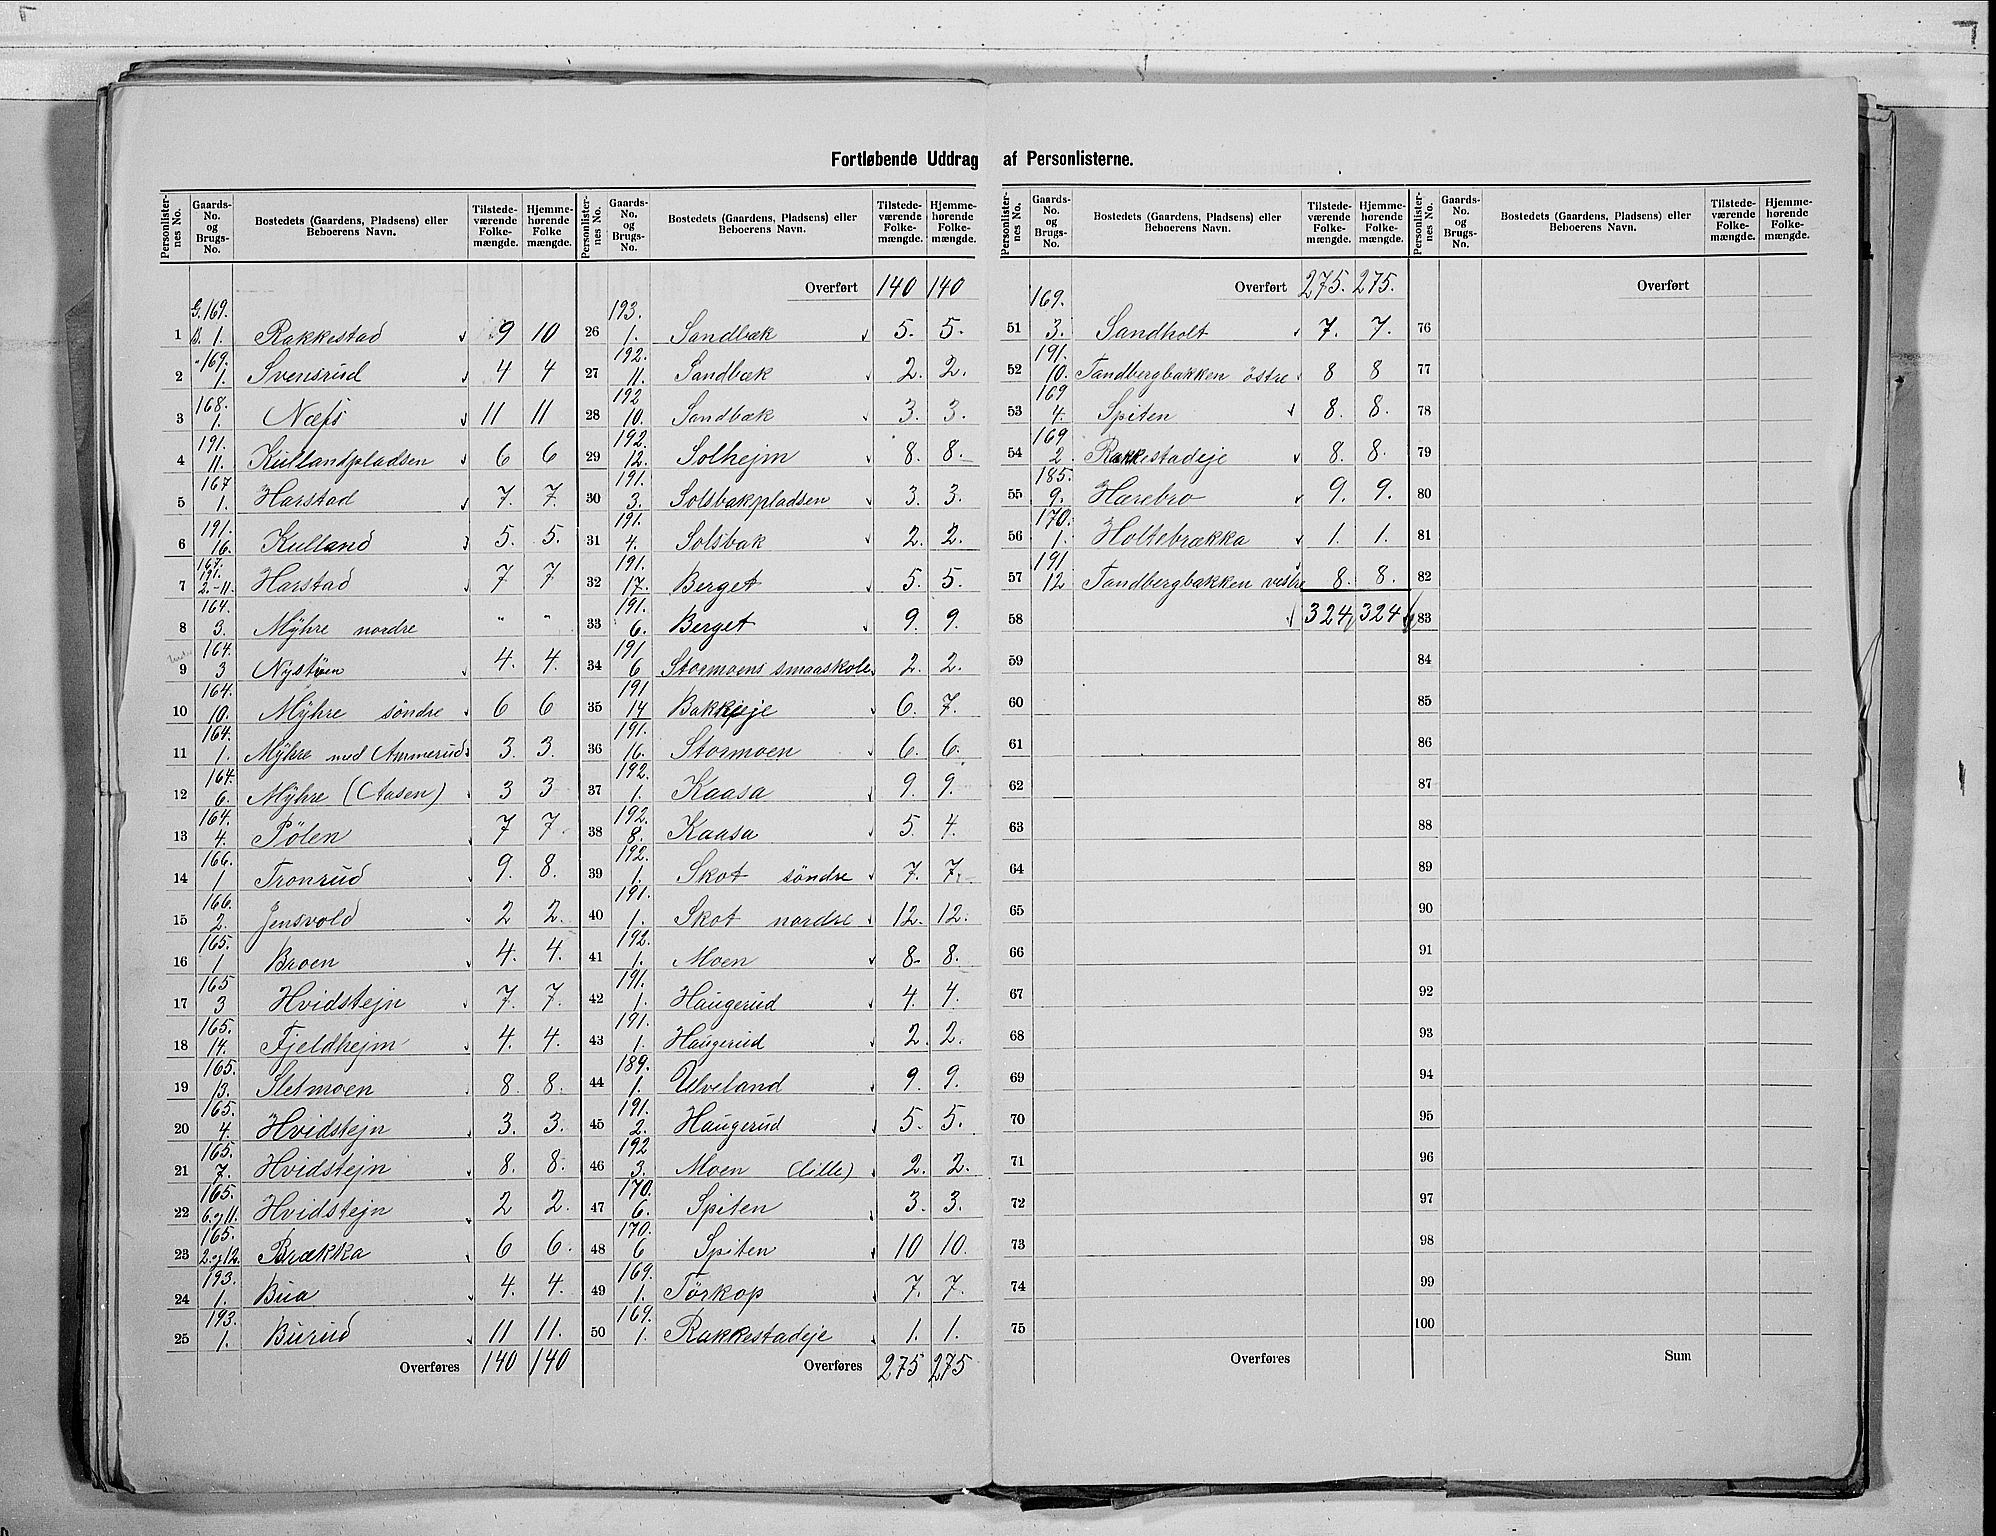 Fortløbende Uddrag af Personlisterne.
Personlister-nes No. Gaards-No. og Brugs-No. Bostedets (Gaardens, Pladsens) eller Beboerens Navn. Tilstede-værende Folke-mængde. Hjemme-hørende Folke-mængde.
G. 169.
1 B. 1. Rakkestad 9 10
" 169.
2 1. Svensrud 4 4
168.
3 1. Næss 11 11
191.
4 11. Kullandpladsen 6 6
167
5 1. Harstad 7. 7.
191.
6 16. Kulland 5. 5.
167.
191.
7 2.-11. Harstad 7 7
164.
8 3. Mÿhre nordre " "
164.
9 3 Nystöen 4. 4.
164.
10 10. Mÿhre söndre 6 6
164.
11 1. Mÿhre med Ammerud 3. 3.
164.
12 6. Mÿhre (Aasen) 3 3
164.
13 4. Pölen 7 7
166.
14 1 Tronrud 9. 8.
166.
15 2. Jensvold 2 2.
165.
16 1 Broen 4. 4.
165
17 3 Hvidstejn 7. 7.
165.
18 14. Fjeldhejm 4. 4.
165.
19 13. Sletmoen 8. 8.
165.
20 4. Hvidstejn 3. 3.
165.
21 7. Hvidstejn 8. 8.
165.
22 6. og 11. Hvidstejn 2 2.
165.
23 2. og 12. Brækka 6 6.
193.
24 1. Bua 4. 4.
193.
25 1. Burud 11 11.
Overføres 140 140
Personlister-nes No. Gaards-No. og Brugs-No. Bostedets (Gaardens, Pladsens) eller Beboerens Navn. Tilstede-værende Folke-mængde. Hjemme-hørende Folke-mængde.
Overført 140 140
193.
26 1. Sandbæk 5. 5.
192.
27 11. Sandbæk 2. 2.
192
28 10. Sandbæk 3. 3.
192.
29 12. Solhejm 8. 8.
191.
30 3. Solsbakpladsen 3. 3.
191.
31 4. Solsbak 2. 2.
191.
32 17. Berget 5. 5.
191.
33 6. Berget 9. 9.
191
34 6 Stormoens smaaskole 2. 2.
191
35 14 Bakkeje 6. 7.
191.
36 16. Stormoen 6. 6.
192.
37 1. Kaasa 9. 9.
192.
38 8. Kaasa 5. 4.
192.
39 1. Skot söndre 7. 7.
191.
40 1. Skot nordre 12. 12.
192.
41 1. Moen 8. 8.
191.
42 1. Haugerud 4. 4.
191.
43 1. Haugerud 2. 2.
189.
44 1. Ulveland 9. 9.
191.
45 2. Haugerud 5. 5.
192
46 3. Moen (lille) 2. 2.
170.
47 6. Spiten 3. 3.
170.
48 6 Spiten 10 10.
169.
49 1. Törkop 7. 7.
169.
50 1. Rakkestadeje 1. 1.
Overføres 275 275
Personlister-nes No. Gaards-No. og Brugs-No. Bostedets (Gaardens, Pladsens) eller Beboerens Navn. Tilstede-værende Folke-mængde. Hjemme-hørende Folke-mængde.
Overført 275. 275.
169.
51 3. Sandholt 7. 7.
191.
52 10. Tandbergbakken östre 8 8
169
53 4. Spiten 8. 8.
169
54 2 Rakkestadeje 8. 8.
185.
55 9. Hærebro 9. 9.
170.
56 1. Holtebrækka 1. 1.
191
57 12 Tandbergbakken vestre 8. 8.
58 324 324
59
60
61
62
63
64
65
66
67
68
69
70
71
72
73
74
75
Overføres
Personlister-nes No. Gaards-No. og Brugs-No. Bostedets (Gaardens, Pladsens) eller Beboerens Navn. Tilstede-værende Folke-mængde. Hjemme-hørende Folke-mængde.
Overført
76
77
78
79
80
81
82
83
84
85
86
87
88
89
90
91
92
93
94
95
96
97
98
99
100
Sum